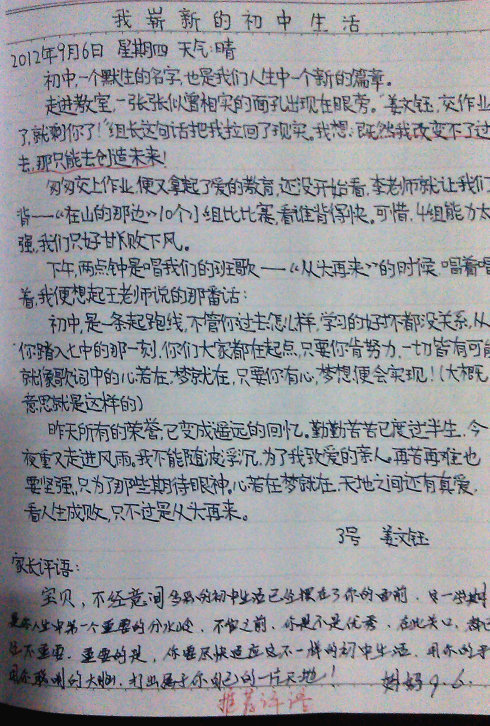 我崭新的初中生活
2012年9月6日 星期四 天气:晴
初中,一个默生的名字,也是我们人生中一个新的篇章。
走进教室,一张张似曾相实的面孔出现在眼旁。"姜文钰,交作业
了,就剩你了!"组长这句话把我拉回了现实。我想:既然我改变不了过
去,那只能去创造未来!
匆匆交上作业,便又拿起了爱的教育,还没开始看,李老师就让我们
背——"在山的那边"10个小组比比赛,看谁背得快。可惜,4组能力太
强,我们只好甘败下风。
下午,两点钟是唱我们的班歌——"《从头再来》"的时候,唱着唱
着,我便想起王老师说的那番话:
初中,是一条起跑线,不管你过去怎么样,学习的好坏都没关系,从
你踏入七中的那一刻,你们大家都在起点,只要你肯努力,一切皆有可能
就像歌词中的心若在,梦就在,只要你有心,梦想便会实现!(大概
意思就是这样的)
昨天所有的荣誉,已变成遥远的回忆。勤勤苦苦已度过半生,今
夜重又走进风雨。我不能随波浮沉,为了我致爱的亲人。再苦再难也
要坚强,只为了那些期待眼神。心若在梦就在,天地之间还有真爱,
看人生成败,只不过是从头再来。
3号 姜文钰
家长评语:
宝贝,不经意间多彩的初中生活已经摆在了你的面前,
是你人生中第一个重要的分水岭,不管之前,你是不是优秀,在此关口,都已
经不重要,重要的是,你要尽快适应这不一样的初中生活,用你的
用你聪明的大脑,打出属于你自己的一片天地!
妈妈 9.6.
推荐评语